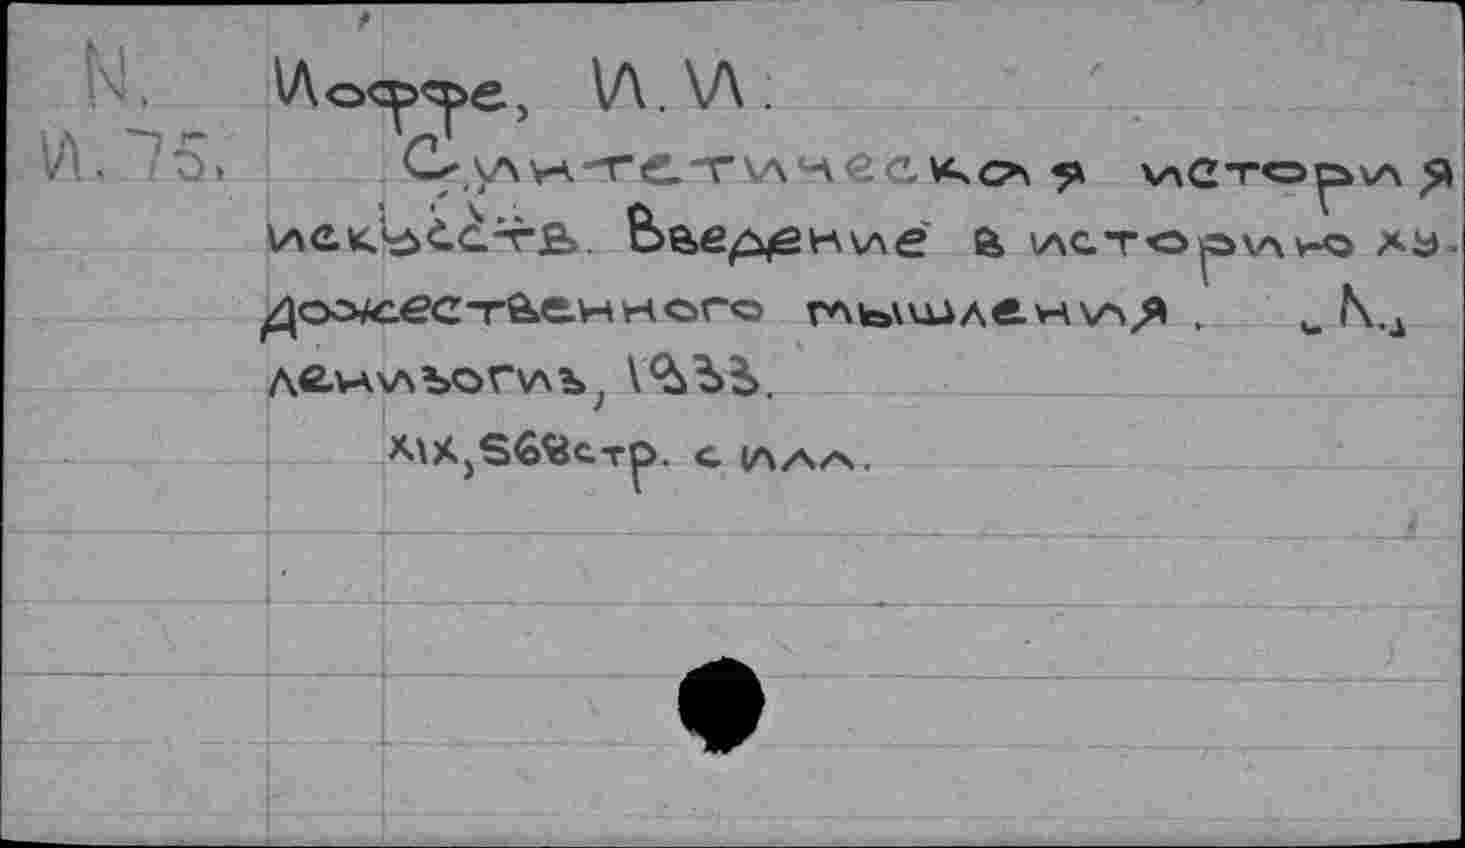 N. Иоффе, И. И.
И.75. Синтетическая история
искусств. Введение в историю ху-
дожественного мышления. Л.,
Ленизогиз, 1933.
XIX, 568 стр. с илл.